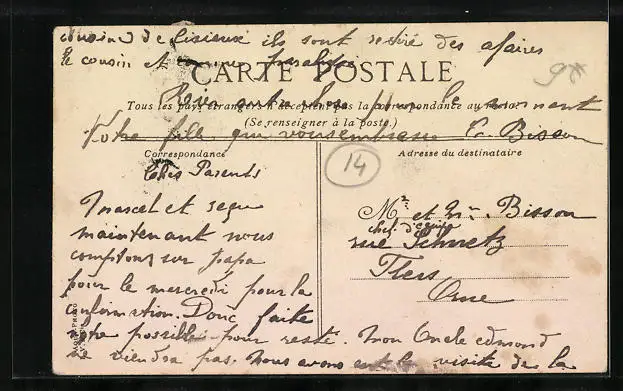 cousine de lisieux ils sont retiré des afaires
le cousin
CARTE POSTALE
Tous les pays étrangers n'acceptent pas la correspondance au recto
(Se renseigner à la poste.)
Rien autre chose pour le moment
Votre fille qui vous embrasse C. Bisson
Correspondance
Adresse du destinataire
14
Chers Parents
Marcel et reçu
maintenant nous
comptons sur papa
pour le mercredi pour la
Donc faite
votre possible pour resté. Mon Oncle edmond
ne viendra pas. Nous avons eut la visite de la
Mr et Mme Bisson
chef d'équipe
rue Schnetz
Flers
Orne